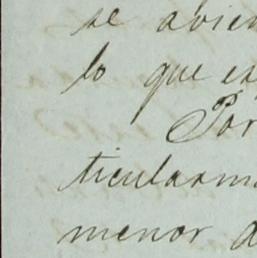 se avien
lo que es
Por
ticularme
menor d